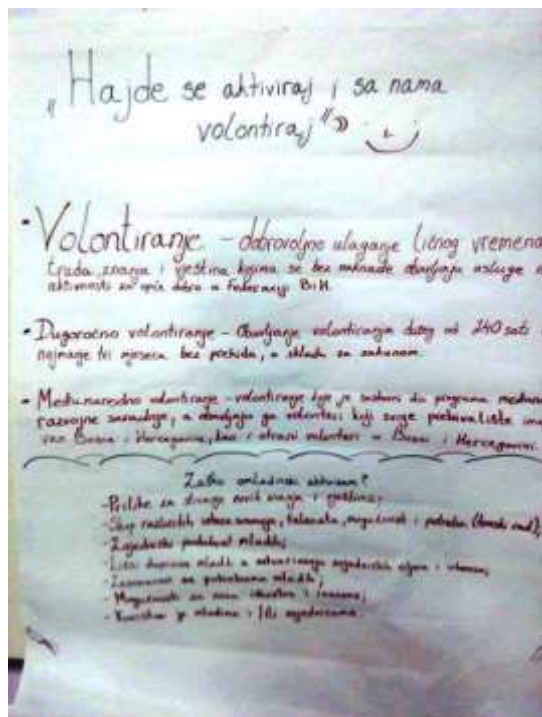 „Hajde se aktiviraj i sa nama
volontiraj"
• Volontiranje – dobrovoljno ulaganje ličnog vremena
truda, znanja i vještina kojima se bez naknade obavljaju usluge
aktivnosti za opće dobro u Federaciji BiH.
• Dugoročno volontiranje – Obavljanje volontiranja dužeg od 240 sati
najmanje tri mjeseca bez prekida, u skladu sa zakonom.
• Međunarodno volontiranje – volontiranje koje je sastavni dio programa
razvojne saradnje, a obavljaju ga volonteri koji svoje prebivalište
van Bosne i Hercegovine, kao i strani volonteri u Bosni i Hercegovini.
Zašto omladinski aktivizam?
- Prilike za sticanje novih znanja i vještina;
- Skup različitih talenata, mogućnosti i potreba (timski rad);
- Zajednički mladih;
- Lični doprinos mladih u ostvarivanju zajedničkih ciljeva i
- Zasnovano na potrebama mladih;
- Mogućnosti za nova iskustva i
- Koristan je mladima i/ili zajednicama.